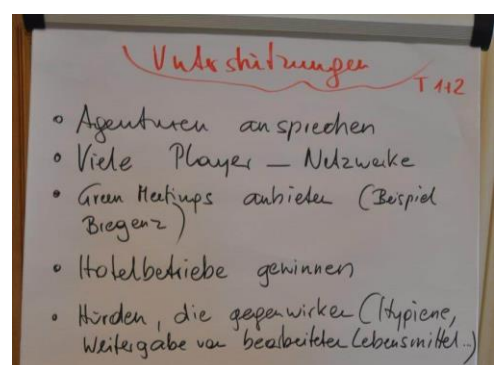 Unterstützungen
T 1+2
• Agenturen ansprechen
• Viele Player – Netzwerke
• Green Meetings anbieten (Beispiel
Bregenz)
• Hotelbetriebe gewinnen
• Hürden, die gegenwirken (Hygiene,
Weitergabe von bearbeiteten Lebensmittel...)